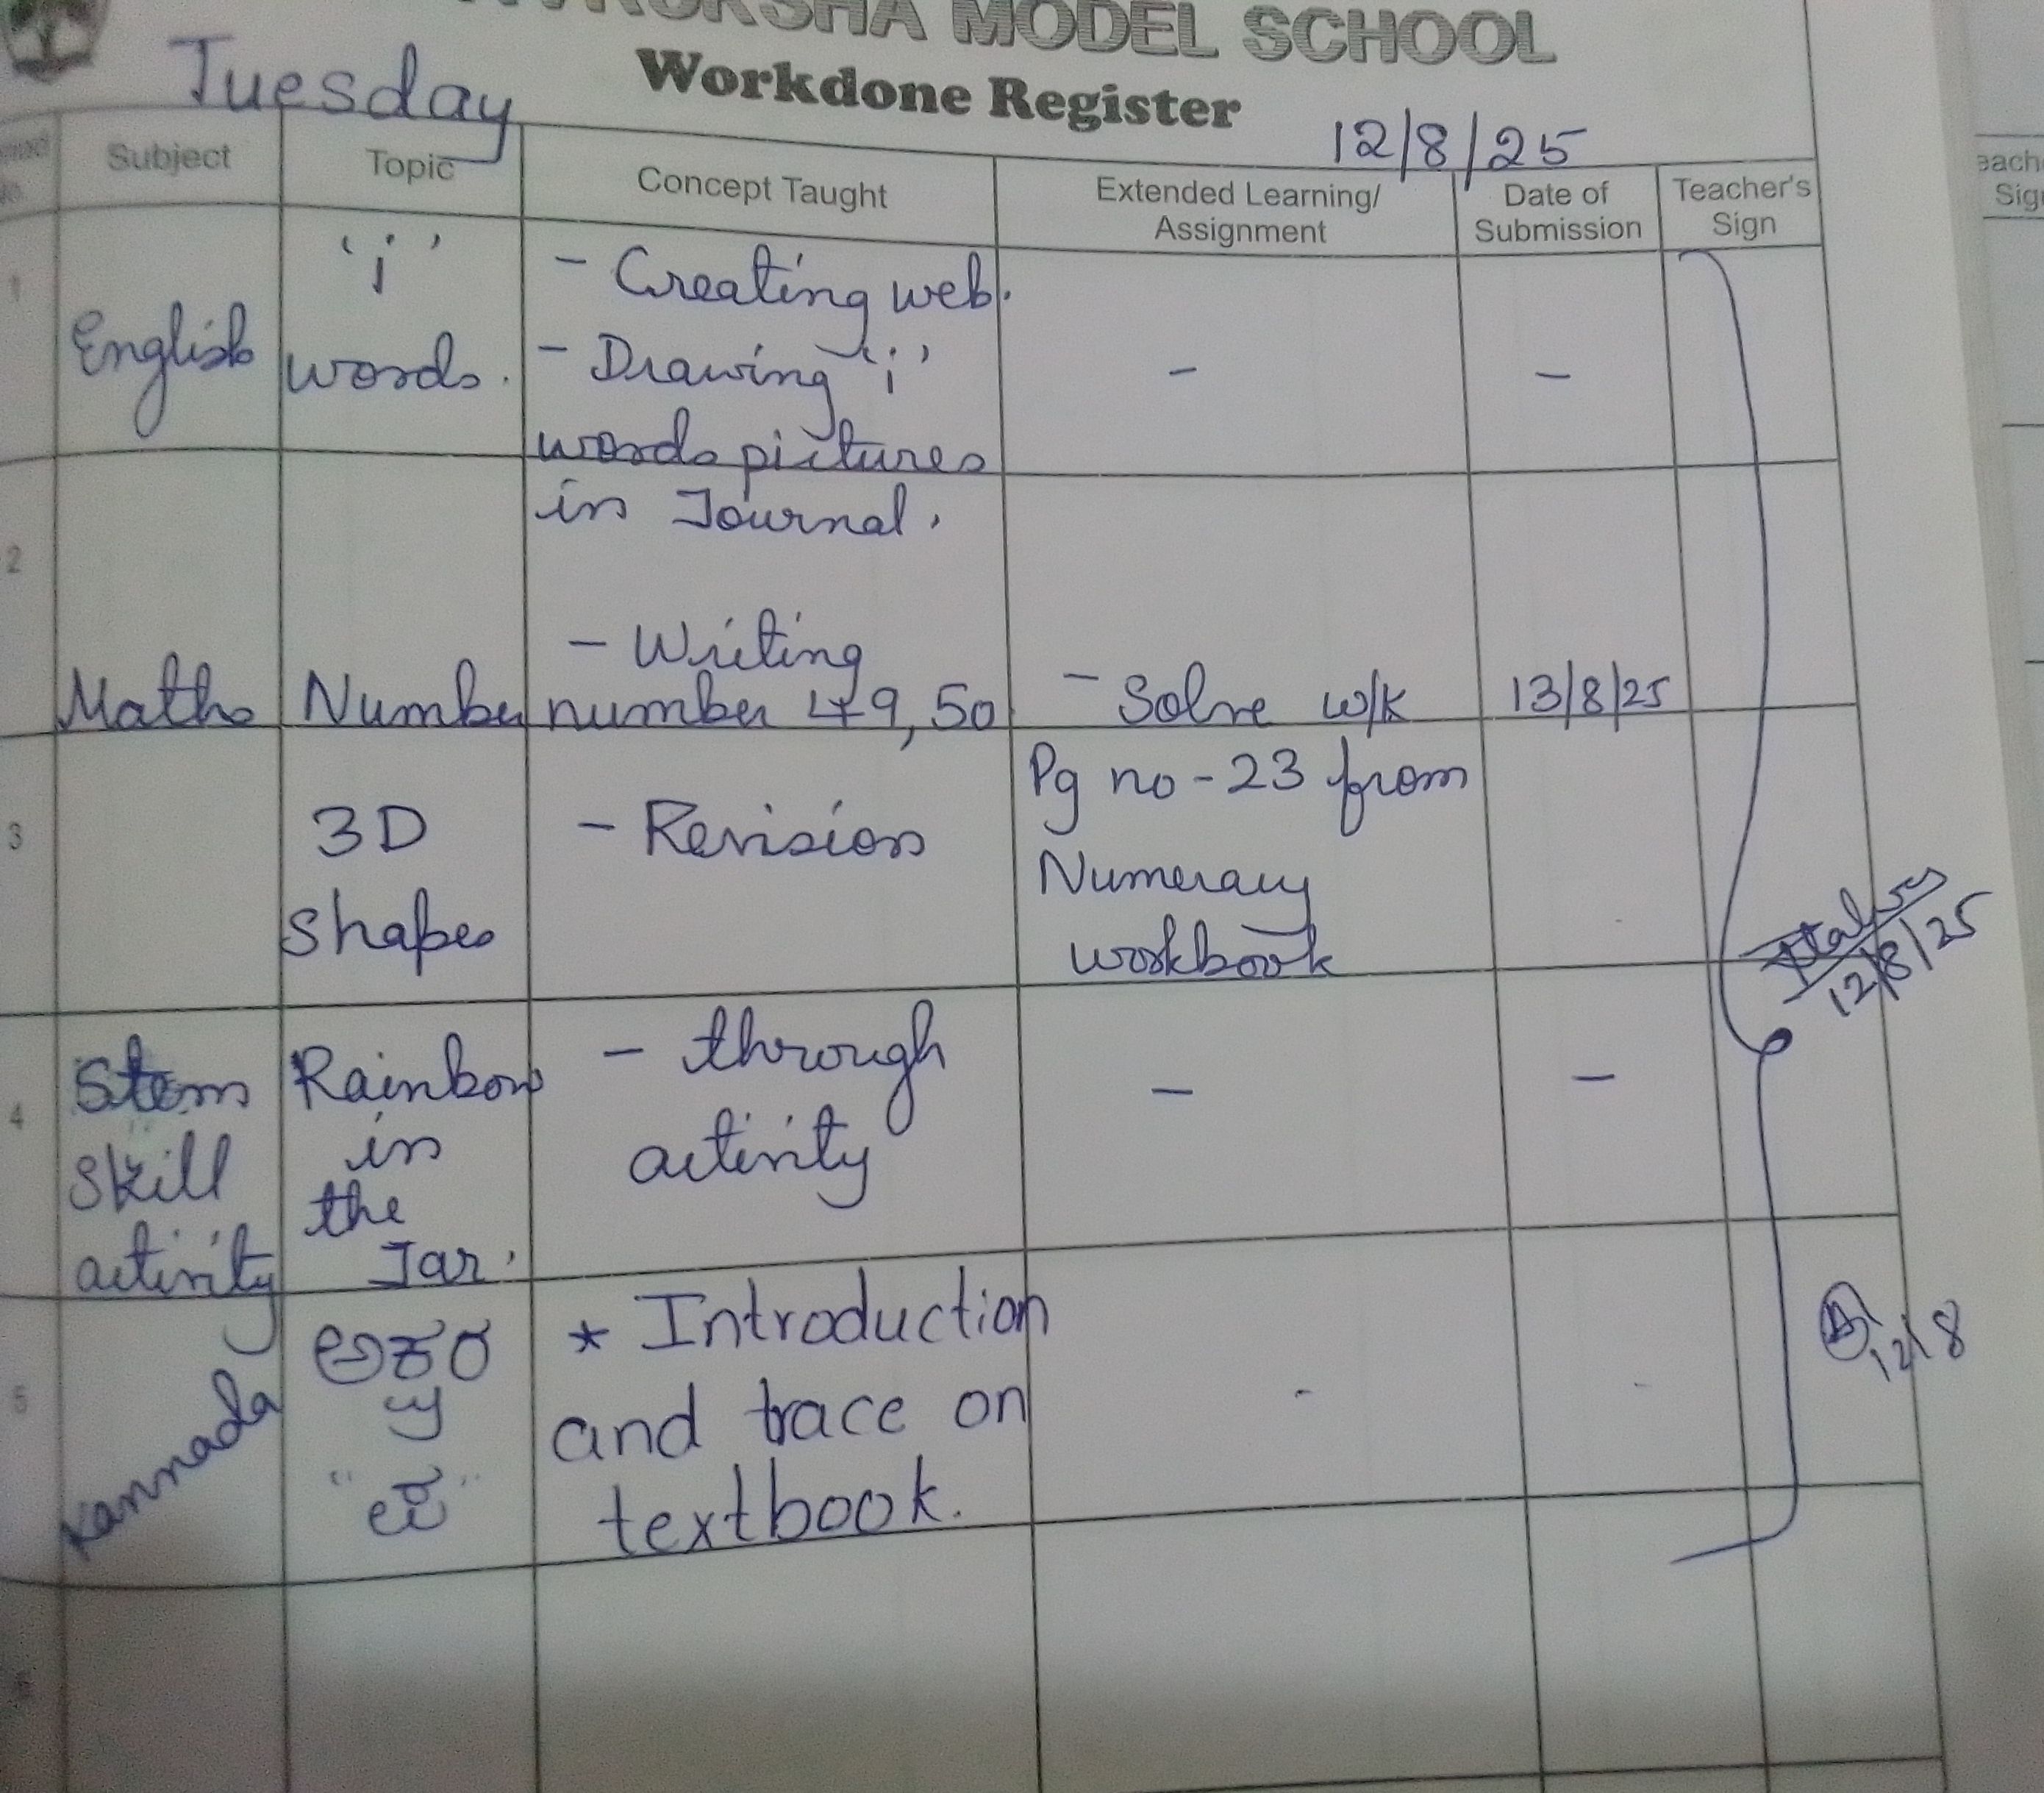 MODEL SCHOOL
Workdone Register
Tuesday
12/8/25
Subject Topic Concept Taught Extended Learning/ Assignment Date of Submission Teacher's Sign
1
English
'i'
words.
- Creating web.
- Drawing 'i'
words pictures
in Journal.
-
-
2
Maths
Number
- Writing
number 49, 50
- Solve w/k
Pg no - 23 from
Numeracy
workbook
13/8/25
3
3D
Shapes
- Revision
12/8/25
4
Stem
Skill
activity
Rainbow
in
the
Jar.
- through
activity
-
-
5
Kannada
* Introduction
and trace on
textbook.
-
-
12/8
each
Sig